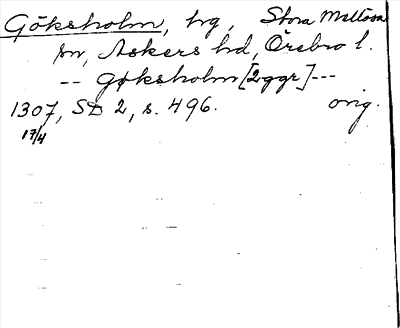 Göksholm, hg, Stora Mellösa
sn, Askers hd, Örebro l.
-- gøksholm [2 ggr] ---
1307, SD 2, s. 496. orig.
17/4